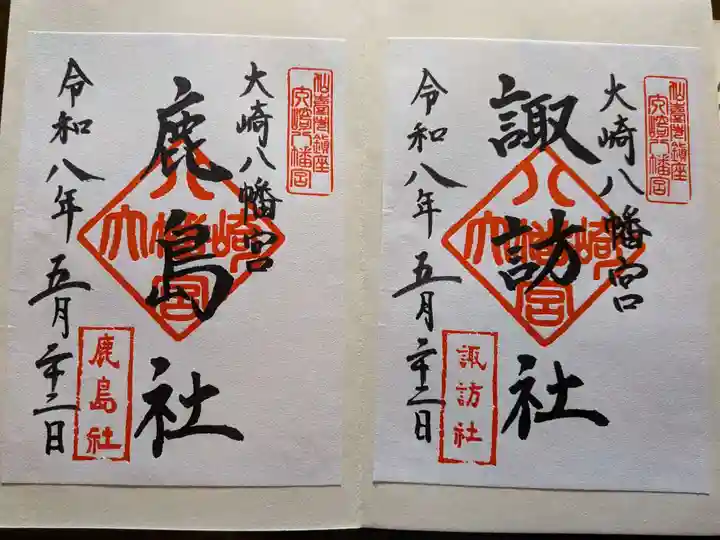 仙臺市鎮座
大崎八幡宮
大崎八幡宮
鹿島社
大崎八幡宮
令和八年五月二十二日
鹿島社
仙臺市鎮座
大崎八幡宮
大崎八幡宮
諏訪社
大崎八幡宮
令和八年五月二十二日
諏訪社